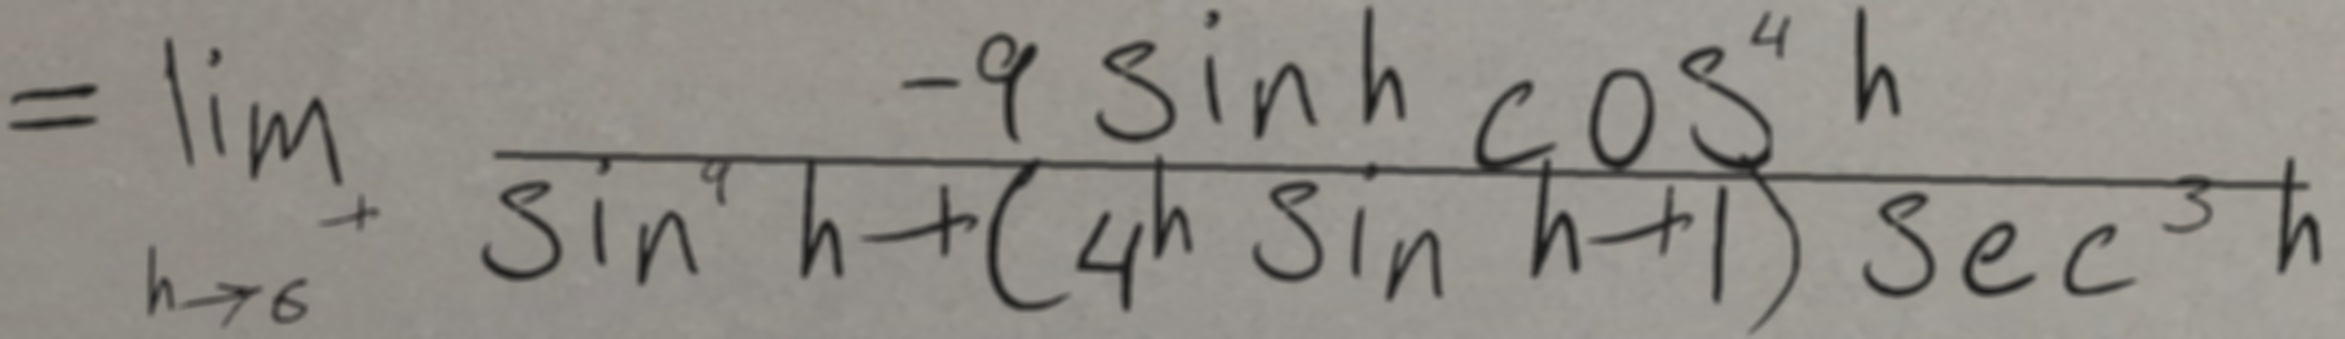 = \lim_{h \to 6^+} \frac{-9 \sin h \cos^4 h}{\sin^9 h + (4^h \sin h + 1) \sec^3 h}